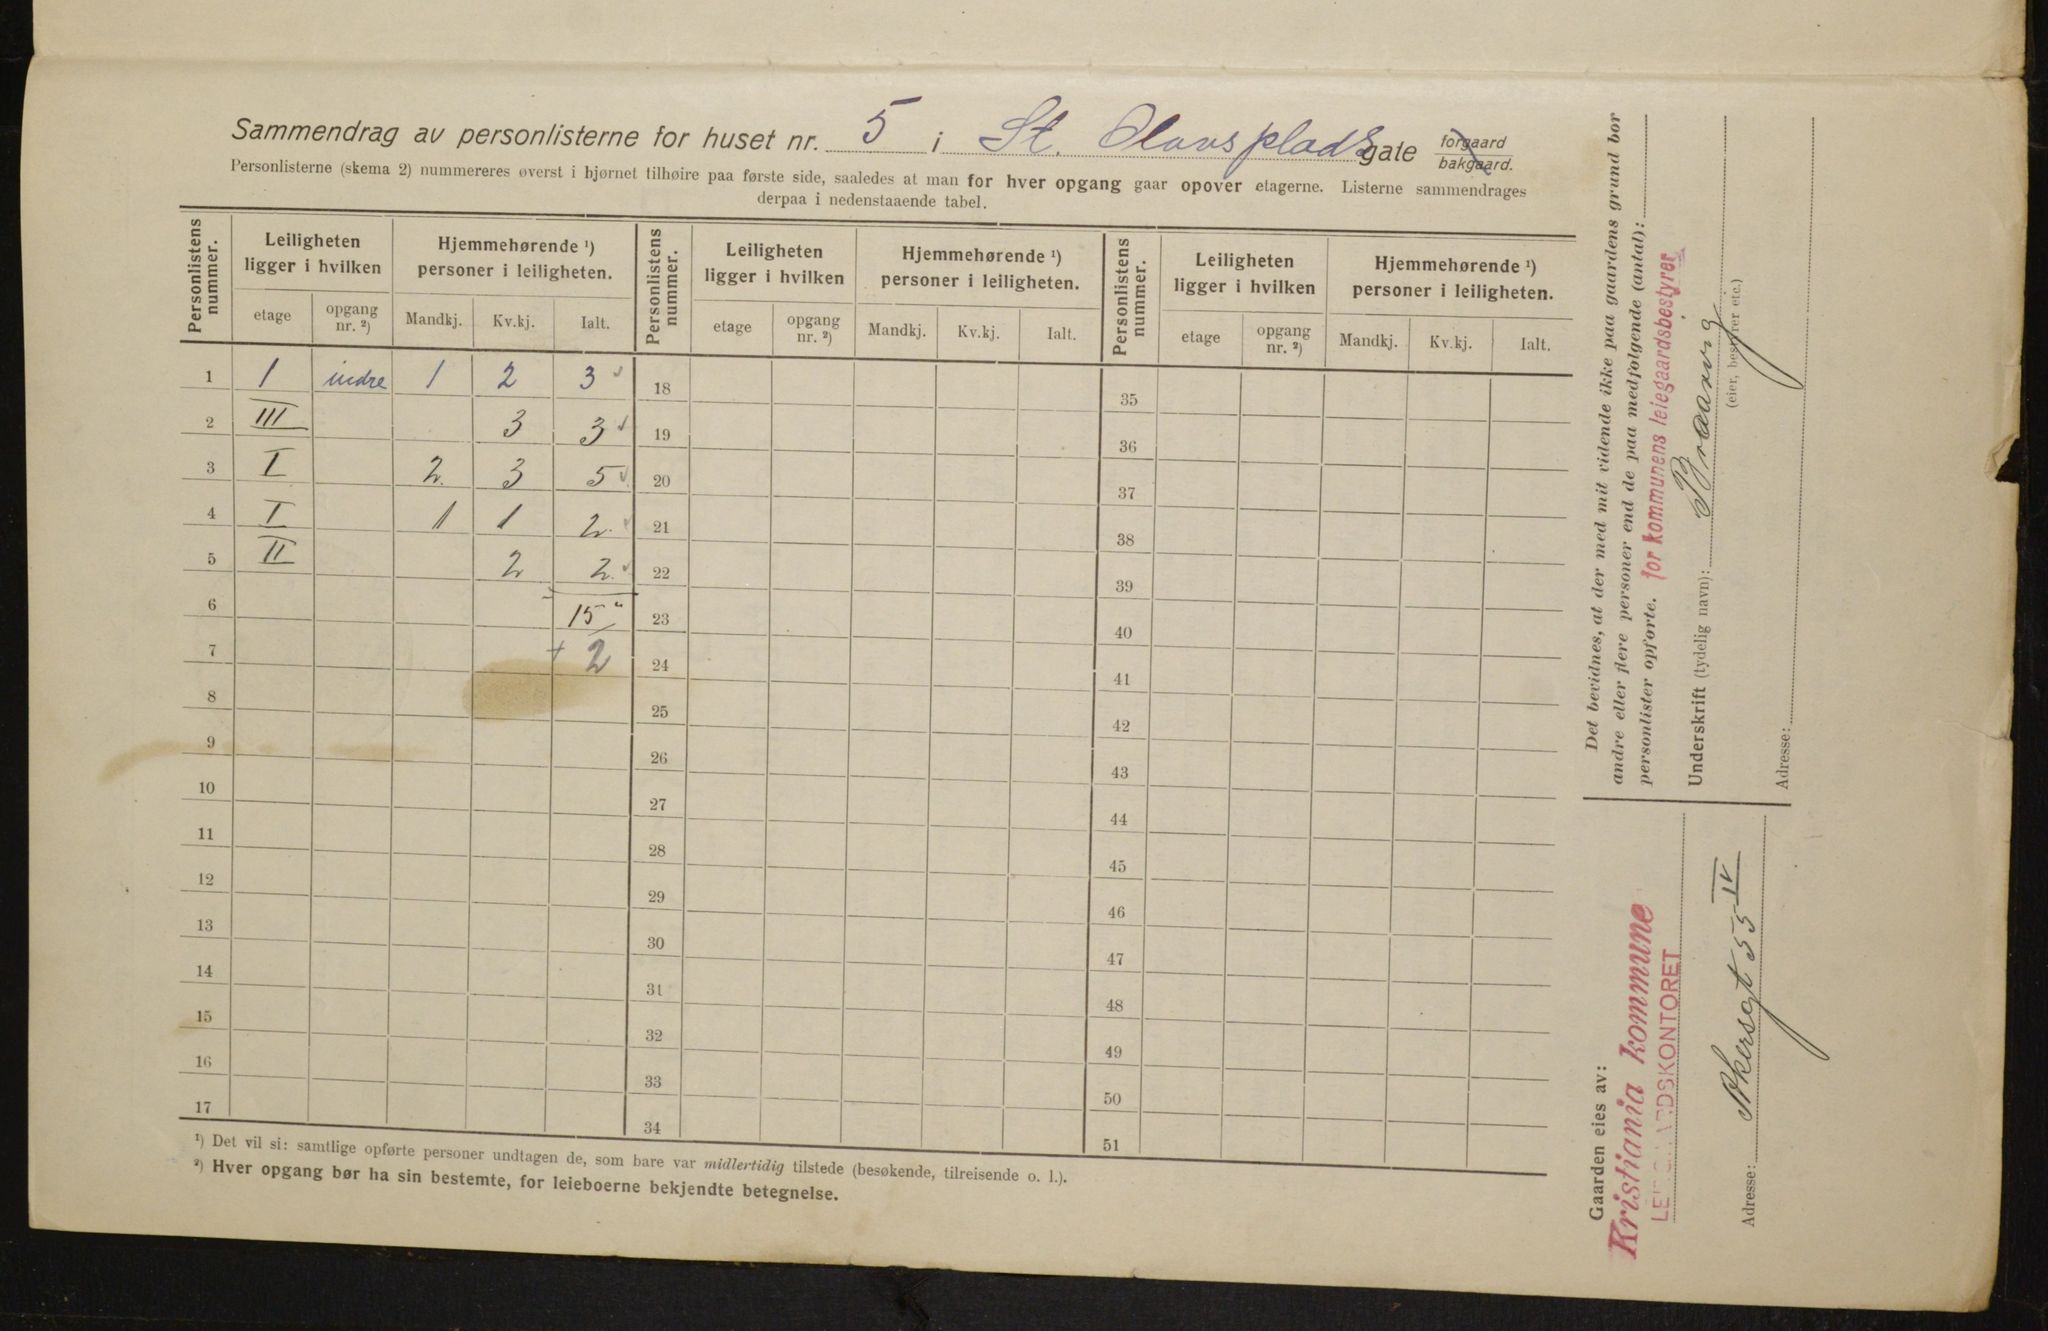 Sammendrag av personlisterne for huset nr. 5 i St. Olavsplads gate forgaard bakgaard.
Personlisterne (skema 2) nummereres øverst i hjørnet tilhøire paa første side, saaledes at man for hver opgang gaar opover etagerne. Listerne sammendrages
derpaa i nedenstaaende tabel.
Personlistens nummer. Leiligheten ligger i hvilken Hjemmehørende ¹) personer i leiligheten. Personlistens nummer. Leiligheten ligger i hvilken Hjemmehørende ¹) personer i leiligheten. Personlistens nummer. Leiligheten ligger i hvilken Hjemmehørende ¹) personer i leiligheten.
etage opgang nr. ²) Mandkj. Kv.kj. Ialt. etage opgang nr. ²) Mandkj. Kv.kj. Ialt. etage opgang nr. ²) Mandkj. Kv.kj. Ialt.
1 1 indre 1 2 3 18 35
2 III 3 3 19 36
3 I 2 3 5 20 37
4 I 1 1 2 21 38
5 II 2 2 22 39
6 15 23 40
7 + 2 24 41
8 25 42
9 26 43
10 27 44
11 28 45
12 29 46
13 30 47
14 31 48
15 32 49
16 33 50
17 34 51
¹) Det vil si: samtlige opførte personer undtagen de, som bare var midlertidig tilstede (besøkende, tilreisende o. l.).
²) Hver opgang bør ha sin bestemte, for leieboerne bekjendte betegnelse.
Det bevidnes, at der med mit vidende ikke paa gaardens grund bor
andre eller flere personer end de paa medfølgende (antal):
personlister opførte. for kommunens leiegaardsbestyrer
Underskrift (tydelig navn): Braarvig
(eier, bestyrer etc.)
Adresse:
Gaarden eies av:
Kristiania kommune
LEIEGAARDSKONTORET
Adresse: Akersgt 55 IV